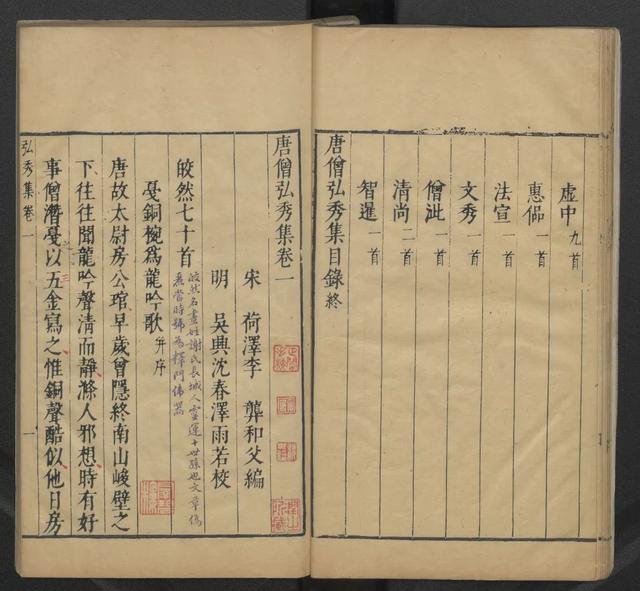 虛中九首
惠偘一首
法宣一首
文秀一首
僧泚一首
清尚二首
智暹一首
唐僧弘秀集目錄終
唐僧弘秀集卷一
宋 荷澤李 龏和父編
明 吳興沈春澤雨若校
皎然七十首
皎然名晝姓謝氏長城人靈運十世孫也文章儁
麗當時號為釋門偉器
戞銅椀爲龍吟歌并序
唐故太尉房公琯早歲曾隱終南山峻壁之
下往往聞龍吟聲清而靜滌人邪想時有好
事僧潛戞以五金寫之惟銅聲酷似他日房
弘秀集卷一
一